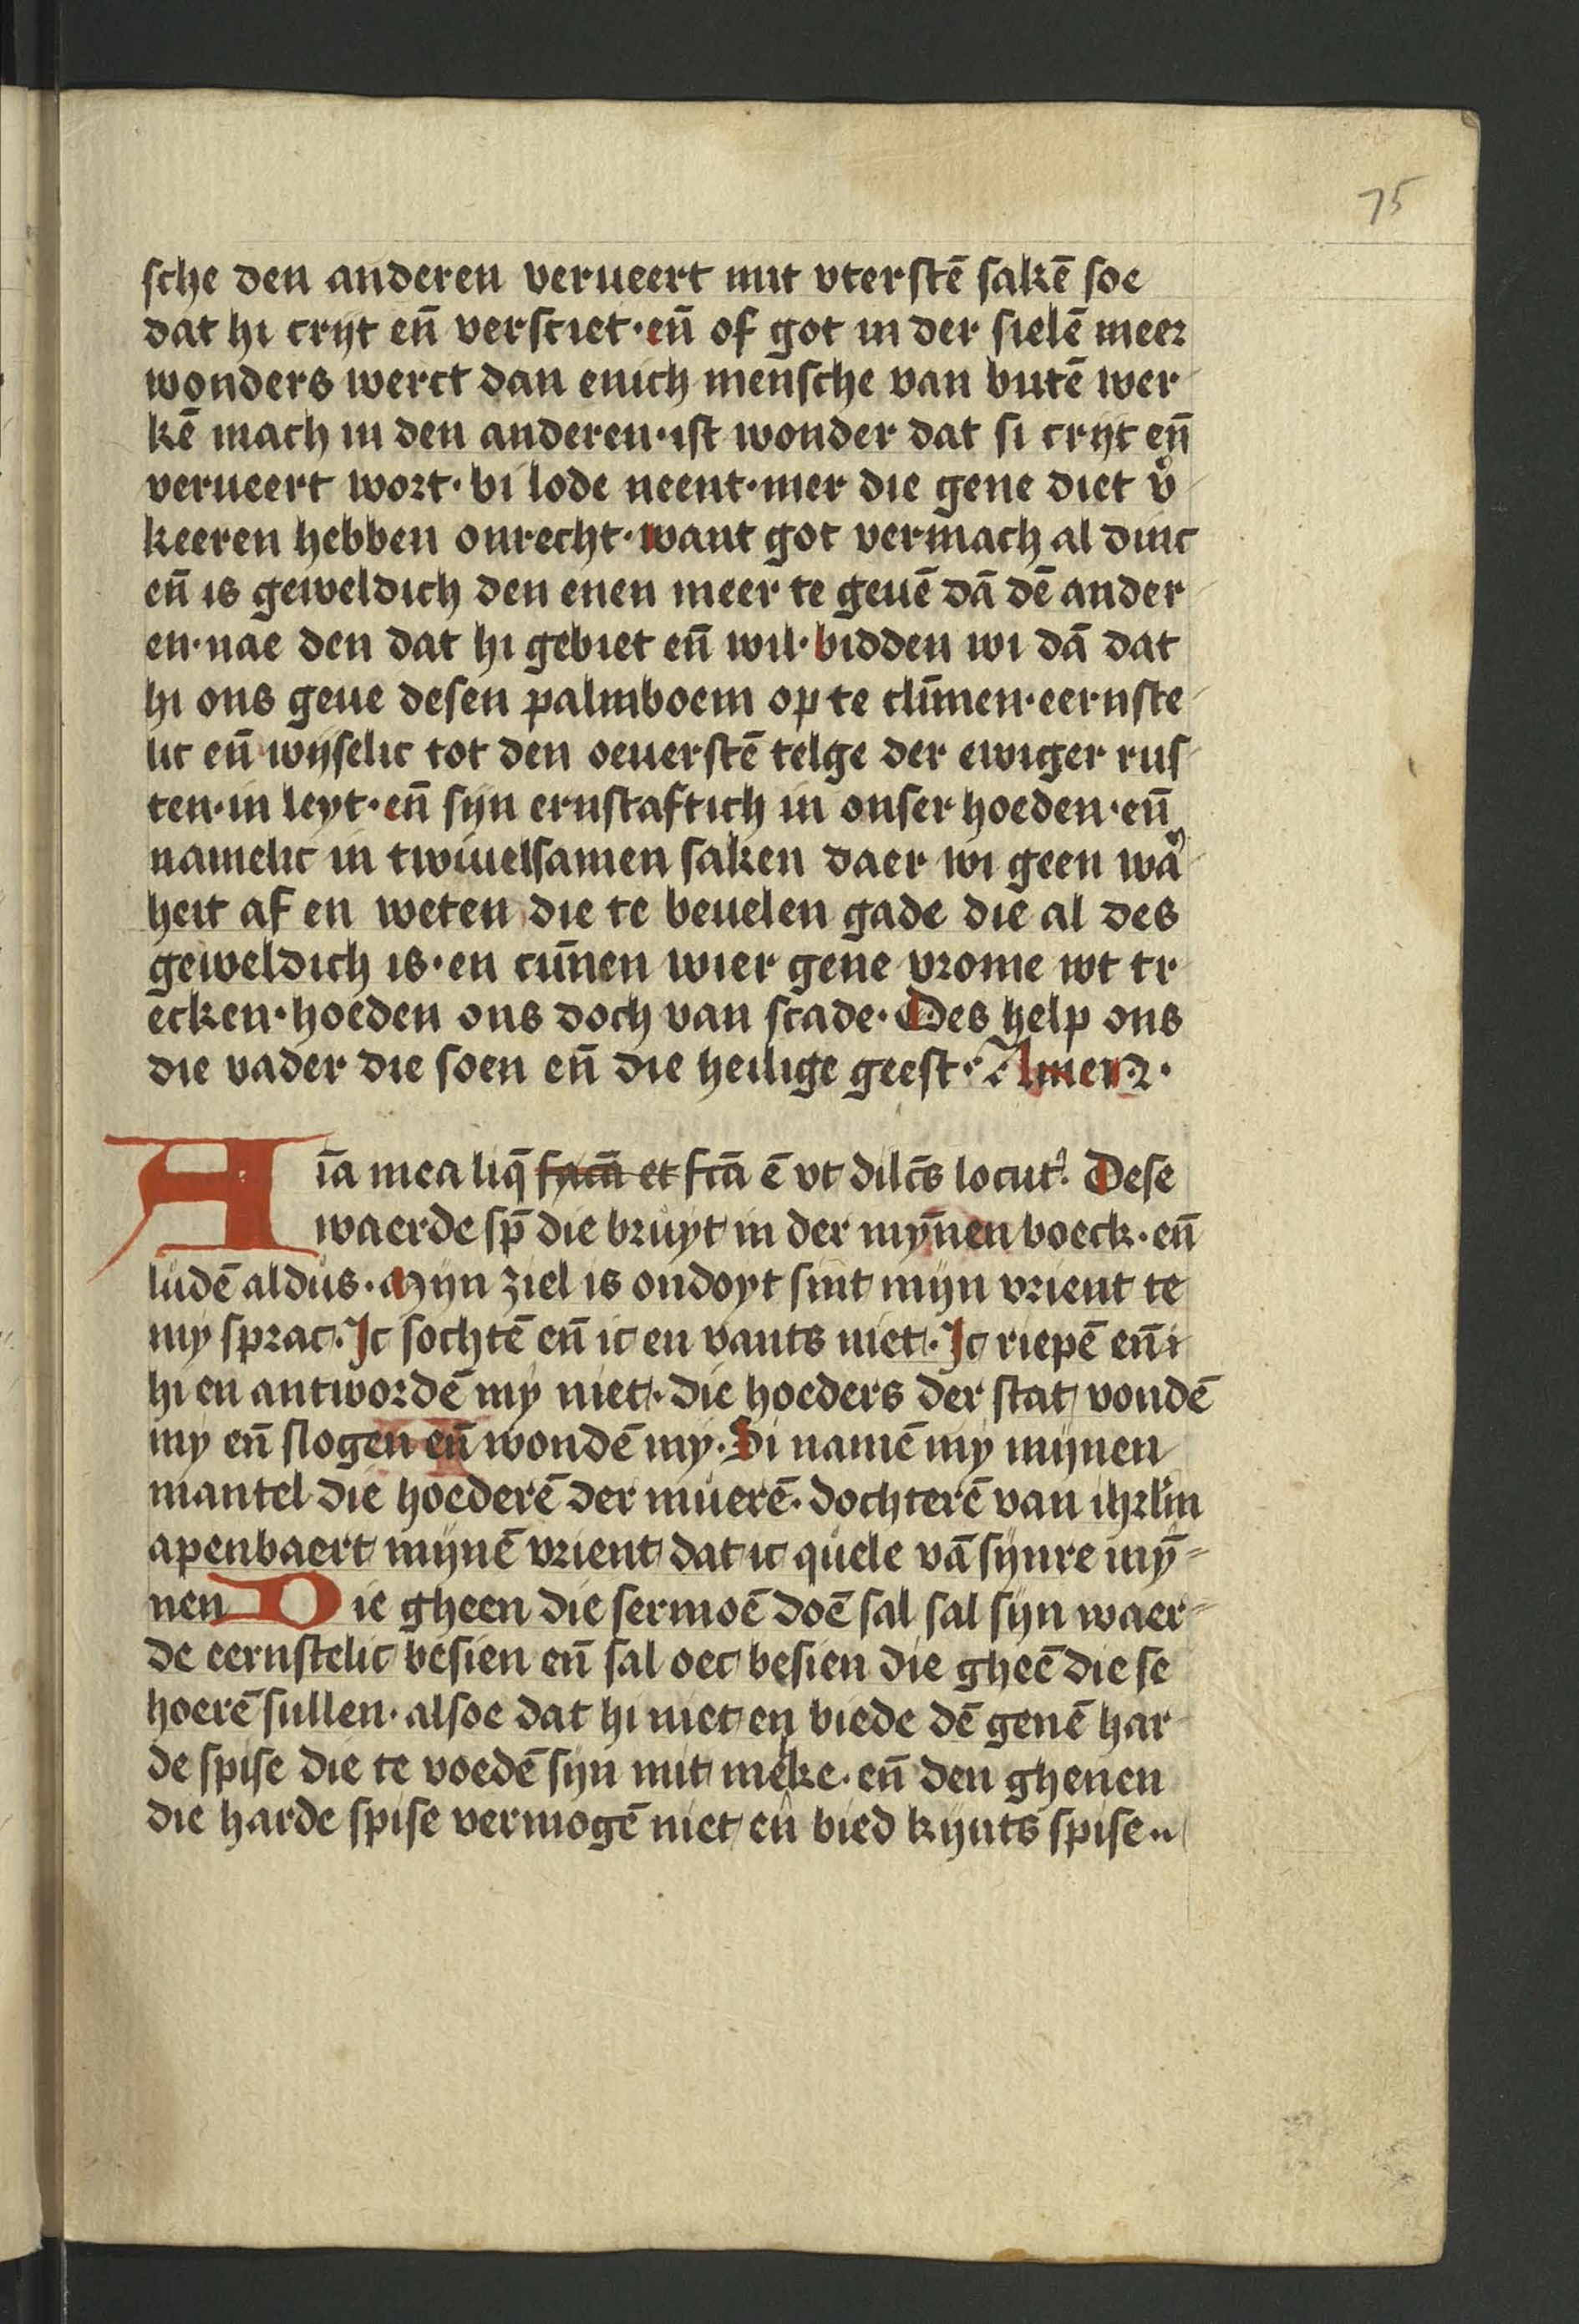 75
sche den anderen verueert mit vterstē sakē soe
dat hi cryt en̄ versciet · en̄ of got in der sielē meer
wonders werct dan enich mensche van butē wer
kē mach in den anderen · ist wonder dat si cryt en̄
verueert wort · bi lode neent · mer die gene diet v̾
keeren hebben onrecht · want got vermach al dinc
en̄ is geweldich den enen meer te geuē dā dē ander
en · nae den dat hi gebiet en̄ wil · bidden wi dā dat
hi ons geue desen palmboem op te clīmen · eernste
lic en̄ wyselic tot den oeuerstē telge der ewiger rus
ten · in leyt · en̄ syn ernstaftich in onser hoeden · en̄
namelic in twiuelsamen saken daer wi geen wa̾
heit af en weten die te beuelen gade die al des
geweldich is · en cūnen wier gene vrome wt tr
ecken · hoeden ons doch van scade · Des help ons
die vader die soen en̄ die heilige geest · Amen ·
Aīa mea liq̄ facā et fcā ē vt dilc̄s locut᾽ · Dese
waerde sp̄ die bruyt in der mȳnen boeck · en̄
ludē aldus · Mijn ziel is ondoyt sint mijn vrient te
my sprac · Ic sochtē en̄ ic en vants niet · Ic riepē en̄ i
hi en antwordē my niet · die hoeders der stat vondē
my en̄ slogen en̄ wondē my · Si namē my mijnen
mantel die hoederē der muerē · dochterē van ihrlm̄
apenbaert mijnē vrient dat ic quele vā sijnre mȳ
nen Die gheen die sermoē doē sal sal sijn waer
de eernstelic besien en̄ sal oec besien die gheē die se
hoerē sullen · alsoe dat hi niet en biede dē genē har
de spise die te voedē sijn mit melke · en̄ den ghenen
die harde spise vermogē niet en bied kynts spise ··